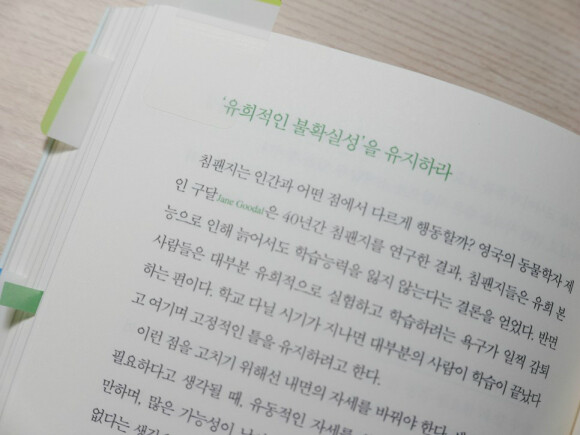 '유희적인 불확실성'을 유지하라
침팬지는 인간과 어떤 점에서 다르게 행동할까? 영국의 동물학자 제
인 구달Jane Goodal은 40년간 침팬지를 연구한 결과, 침팬지들은 유희 본
능으로 인해 늙어서도 학습능력을 잃지 않는다는 결론을 얻었다. 반면
사람들은 대부분 유희적으로 실험하고 학습하려는 욕구가 일찍 감퇴
하는 편이다. 학교 다닐 시기가 지나면 대부분의 사람이 학습이 끝났다
고 여기며 고정적인 틀을 유지하려고 한다.
이런 점을 고치기 위해선 내면의 자세를 바꿔야 한다.
필요하다고 생각될 때, 유동적인 자세를
만하며, 많은 가능성이
없다는